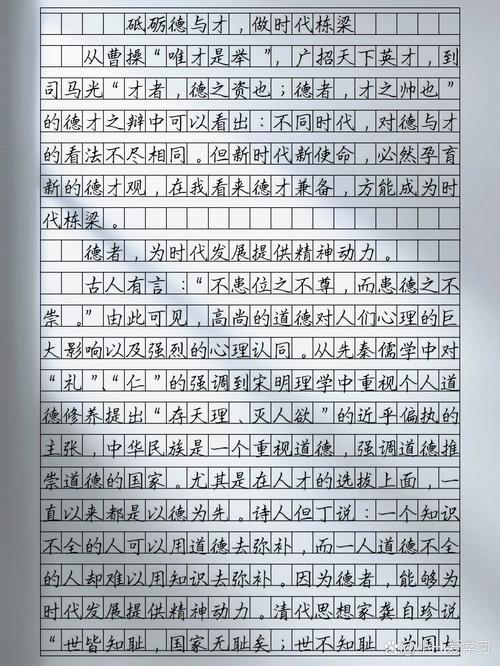 砥砺德与才，做时代栋梁
从曹操“唯才是举”，广招天下英才，到
司马光“才者，德之资也；德者，才之帅也”
的德才之辩中可以看出：不同时代，对德与才
的看法不尽相同。但新时代新使命，必然孕育
新的德才观，在我看来德才兼备，方能成为时
代栋梁。
德者，为时代发展提供精神动力。
古人有言：“不患位之不尊，而患德之不
崇。”由此可见，高尚的道德对人们心理的巨
大影响以及强烈的心理认同。从先秦儒学中对
“礼”、“仁”的强调到宋明理学中重视个人道
德修养提出“存天理、灭人欲”的近乎偏执的
主张，中华民族是一个重视道德，强调道德推
崇道德的国家。尤其是在人才的选拔上面，一
直以来都是以德为先。诗人但丁说：一个知识
不全的人可以用道德去弥补，而一人道德不全
的人却难以用知识去弥补。因为德者，能够为
时代发展提供精神动力。清代思想家龚自珍说
“世皆知耻，国家无耻矣；世不知耻，为国大
爱学习